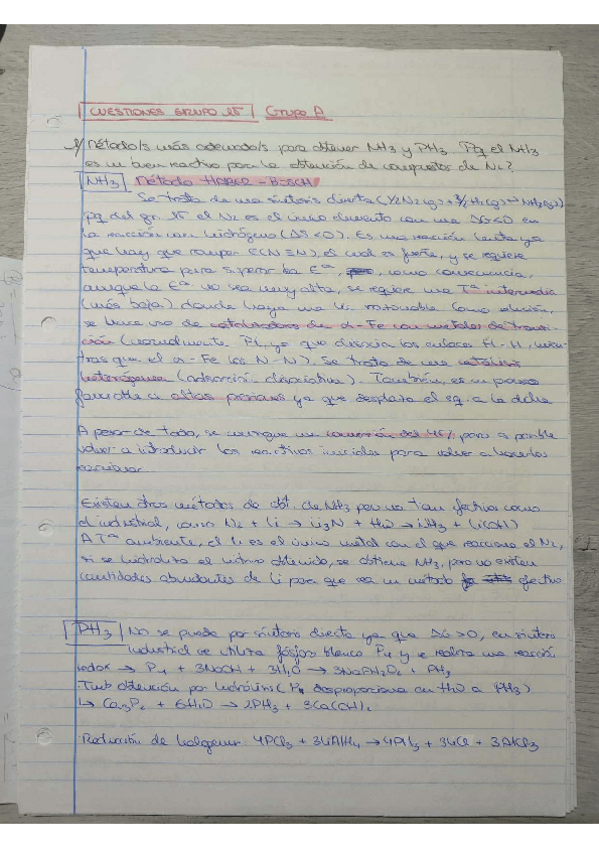 CUESTIONES GRUPO 15 | Grupo A
1/ Método/s más adecuado/s para obtener NH3 y PH3. Pq el NH3
es un bien reactivo para la obtención de compuestos de N2?
NH3 Método HABER-BOSCH
Se trata de una síntesis directa (1/2N2(g) + 3/2H2(g) → NH3(g))
pq del gr. 15 el N2 es el único elemento con una ΔG<0 en
la reacción con hidrógeno (ΔS<0). Es una reacción lenta ya
que hay que romper E(N≡N), el cual es fuerte, y se requiere
temperatura para superar la Eª, como consecuencia,
aunque la Eª no sea muy alta, se requiere una Tª intermedia
(más baja) donde haya una K razonable. Como solución,
se hace uso de catalizadores de α-Fe con metales de transi-
ción (normalmente Pt, ya que disocia los enlaces H-H, mien-
tras que el α-Fe los N-N). Se trata de una catálisis
heterógenea (adsorción disociativa). También, es un proceso
favorable a altas presiones ya que desplaza el eq. a la dcha
A pesar de todo, se consigue una conversión del 15% pero es posible
volver a introducir los reactivos iniciales para volver a hacerlos
reaccionar.
Existen otros métodos de obt. de NH3 pero no tan efectivos como
el industrial, como N2 + Li → Li3N + H2O → NH3 + Li(OH)
A Tª ambiente, el Li es el único metal con el que reacciona el N2,
si se hidroliza el nitruro obtenido, se obtiene NH3, pero no existen
cantidades abundantes de Li para que sea un método efectivo
PH3 | No se puede por síntesis directa ya que ΔG>0, en síntesis
industrial se utiliza fósforo blanco P4 y se realiza una reacción
redox → P4 + 3NaOH + 3H2O → 3NaPH2O2 + PH3
Tmb obtención por hidrólisis (P4 desproporciona en H2O a PH3)
↳ Ca3P2 + 6H2O → 2PH3 + 3Ca(OH)2
Reducción de halogenuro: 4PCl3 + 3LiAlH4 → 4PH3 + 3LiCl + 3AlCl3